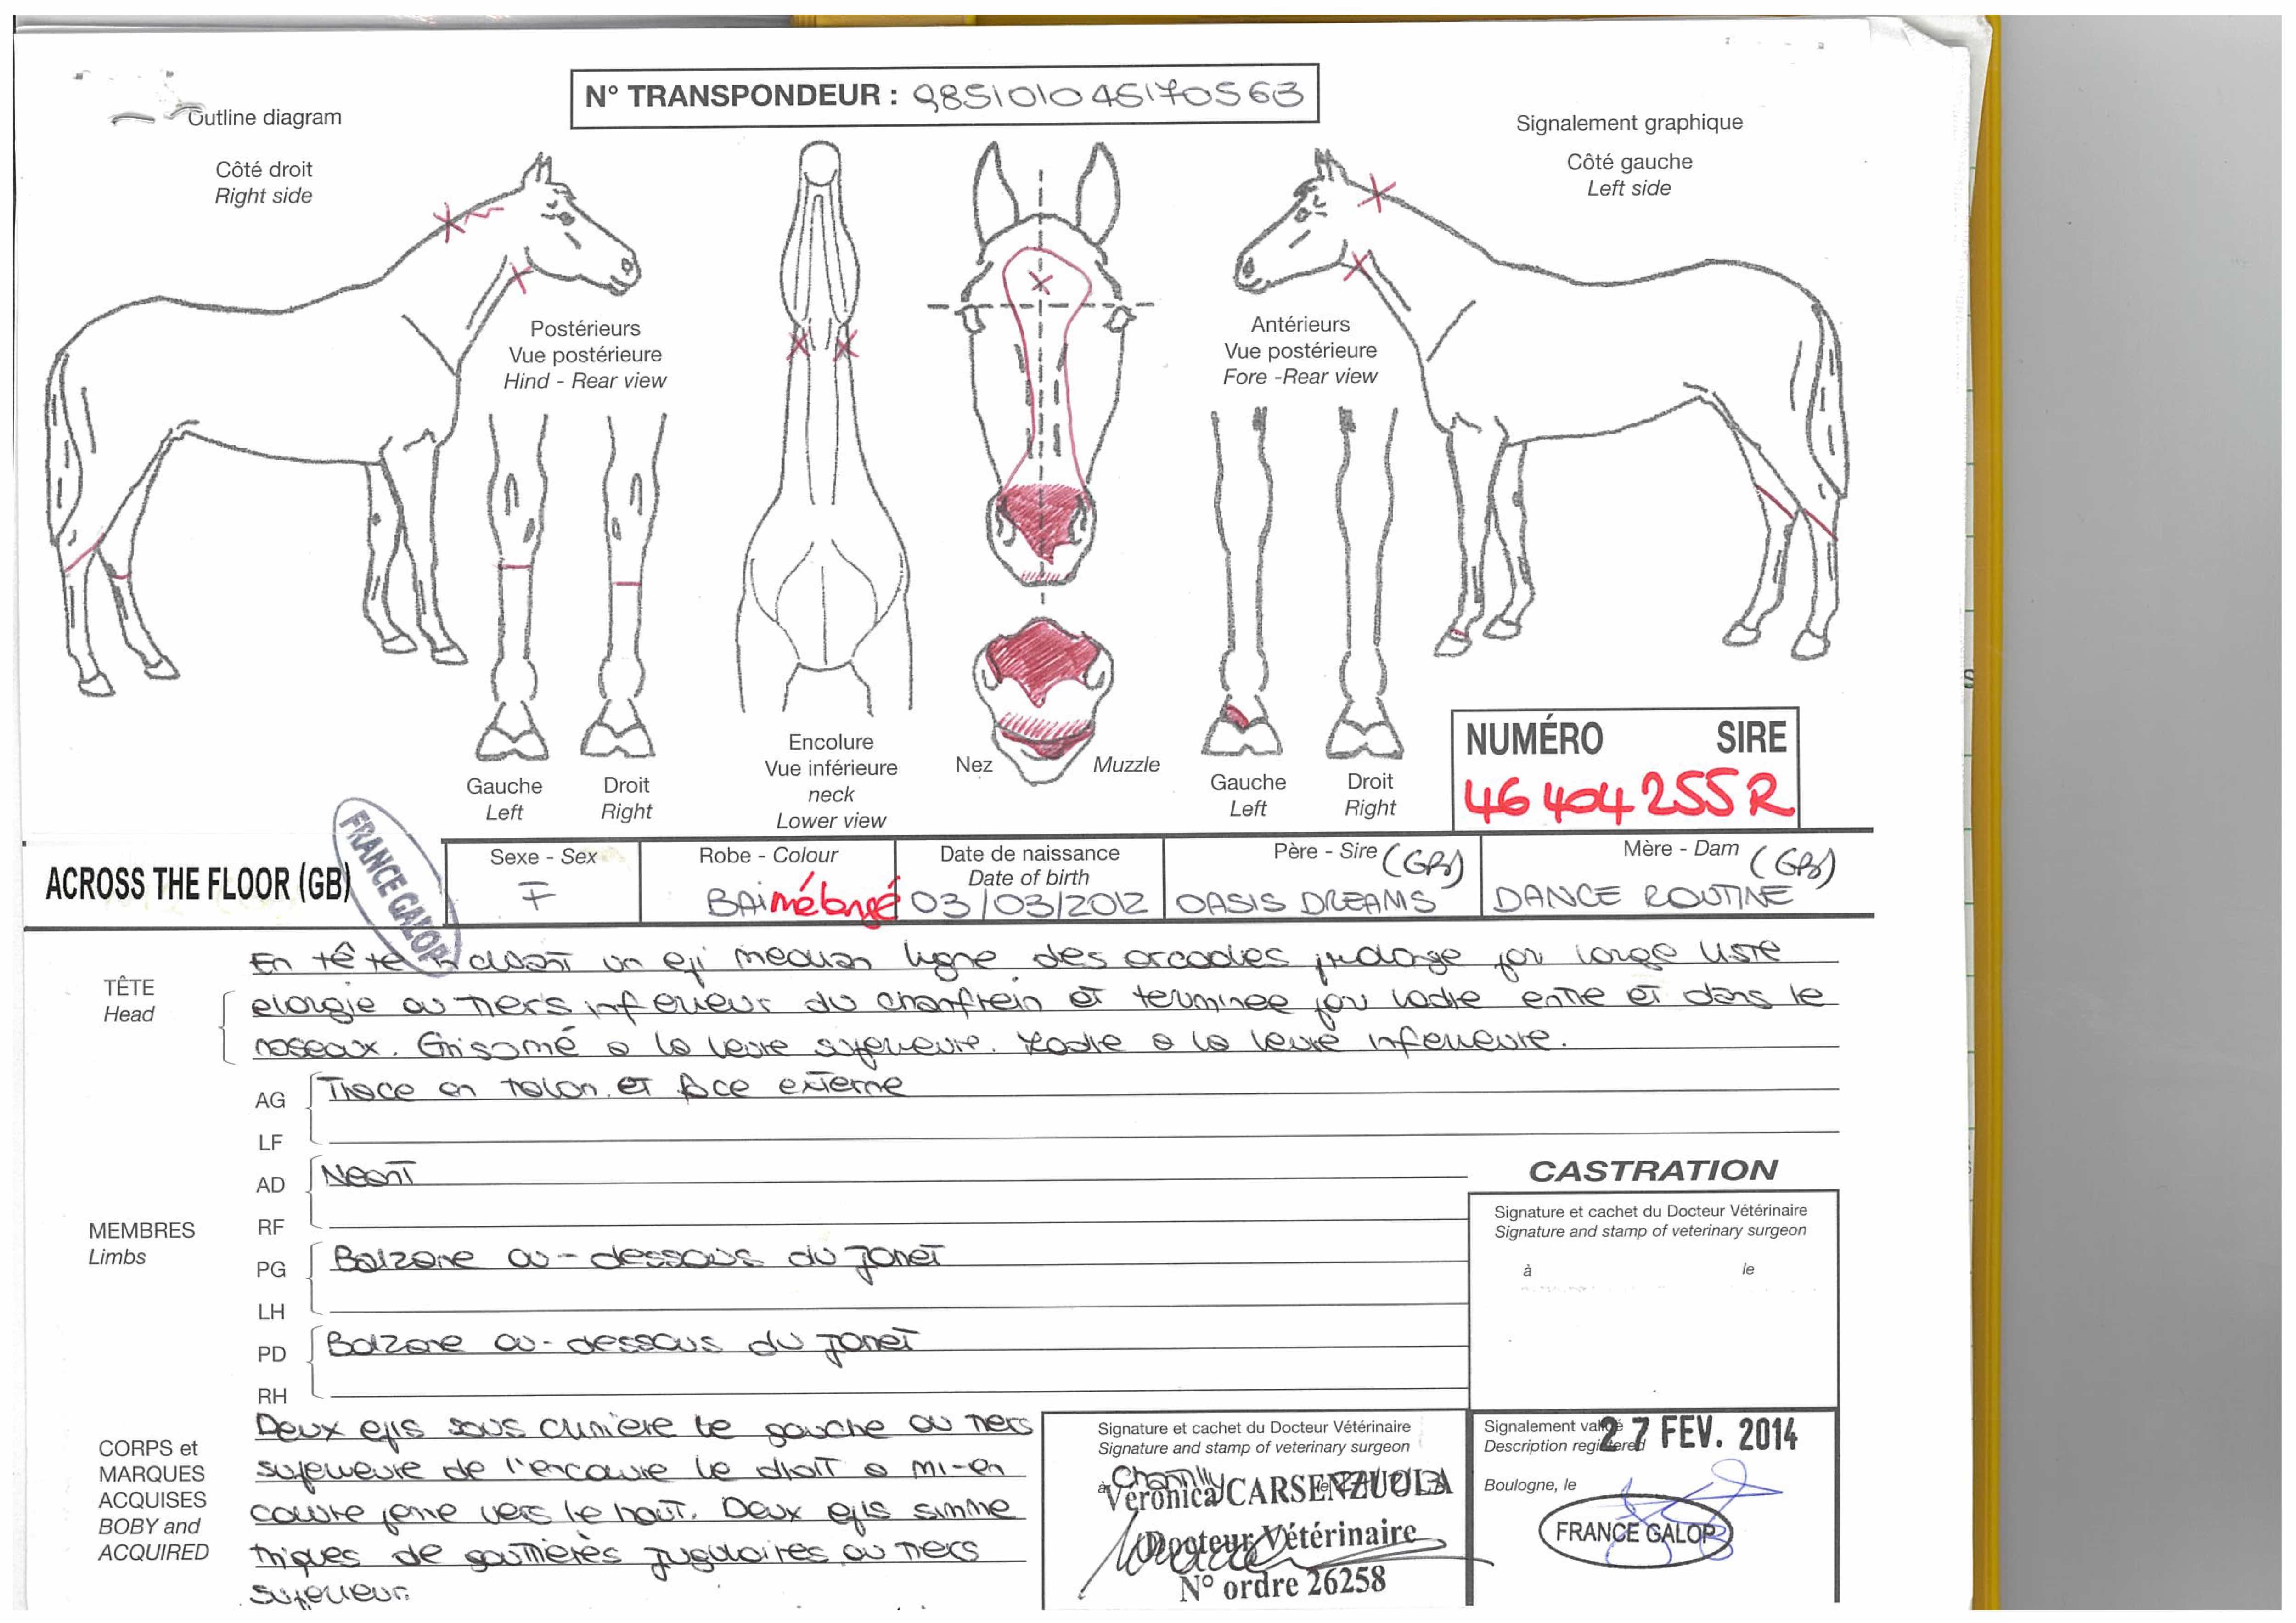 N° TRANSPONDEUR : 985101045170563
Outline diagram
Signalement graphique
Côté droit
Right side
Côté gauche
Left side
Postérieurs
Vue postérieure
Hind - Rear view
Antérieurs
Vue postérieure
Fore -Rear view
Gauche
Left
Droit
Right
Encolure
Vue inférieure
neck
Lower view
Nez
Muzzle
Gauche
Left
Droit
Right
NUMÉRO SIRE
46 404 255 R
ACROSS THE FLOOR (GB)
FRANCE GALOP
Sexe - Sex
F
Robe - Colour
BAI mélangé
Date de naissance
Date of birth
03/03/2012
Père - Sire (GB)
OASIS DREAMS
Mère - Dam (GB)
DANCE ROUTINE
TÊTE
Head
En tête un epi median ligne des arcades par large liste
elargie au tiers inferieur du chanfrein et terminee par ladre entre et dans le
naseaux. Grisomé a la levre superieure. Ladre a la levre inferieure.
MEMBRES
Limbs
AG
LF
Trace en talon et face externe
AD
RF
Neant
PG
LH
Balzane au-dessous du jarret
PD
RH
Balzane au-dessous du jarret
CASTRATION
Signature et cachet du Docteur Vétérinaire
Signature and stamp of veterinary surgeon
à le
CORPS et
MARQUES
ACQUISES
BOBY and
ACQUIRED
Deux epis sous criniere le gauche au tiers
superieure de l'encolure le droit a mi-en
colure penne vers le haut. Deux epis symme
triques de gouttières jugulaires au tiers
superieur.
Signature et cachet du Docteur Vétérinaire
Signature and stamp of veterinary surgeon
à Chantilly le
Veronica CARSENZUOLA
Docteur Vétérinaire
N° ordre 26258
Signalement validé
Description registered
27 FEV. 2014
Boulogne, le
FRANCE GALOP